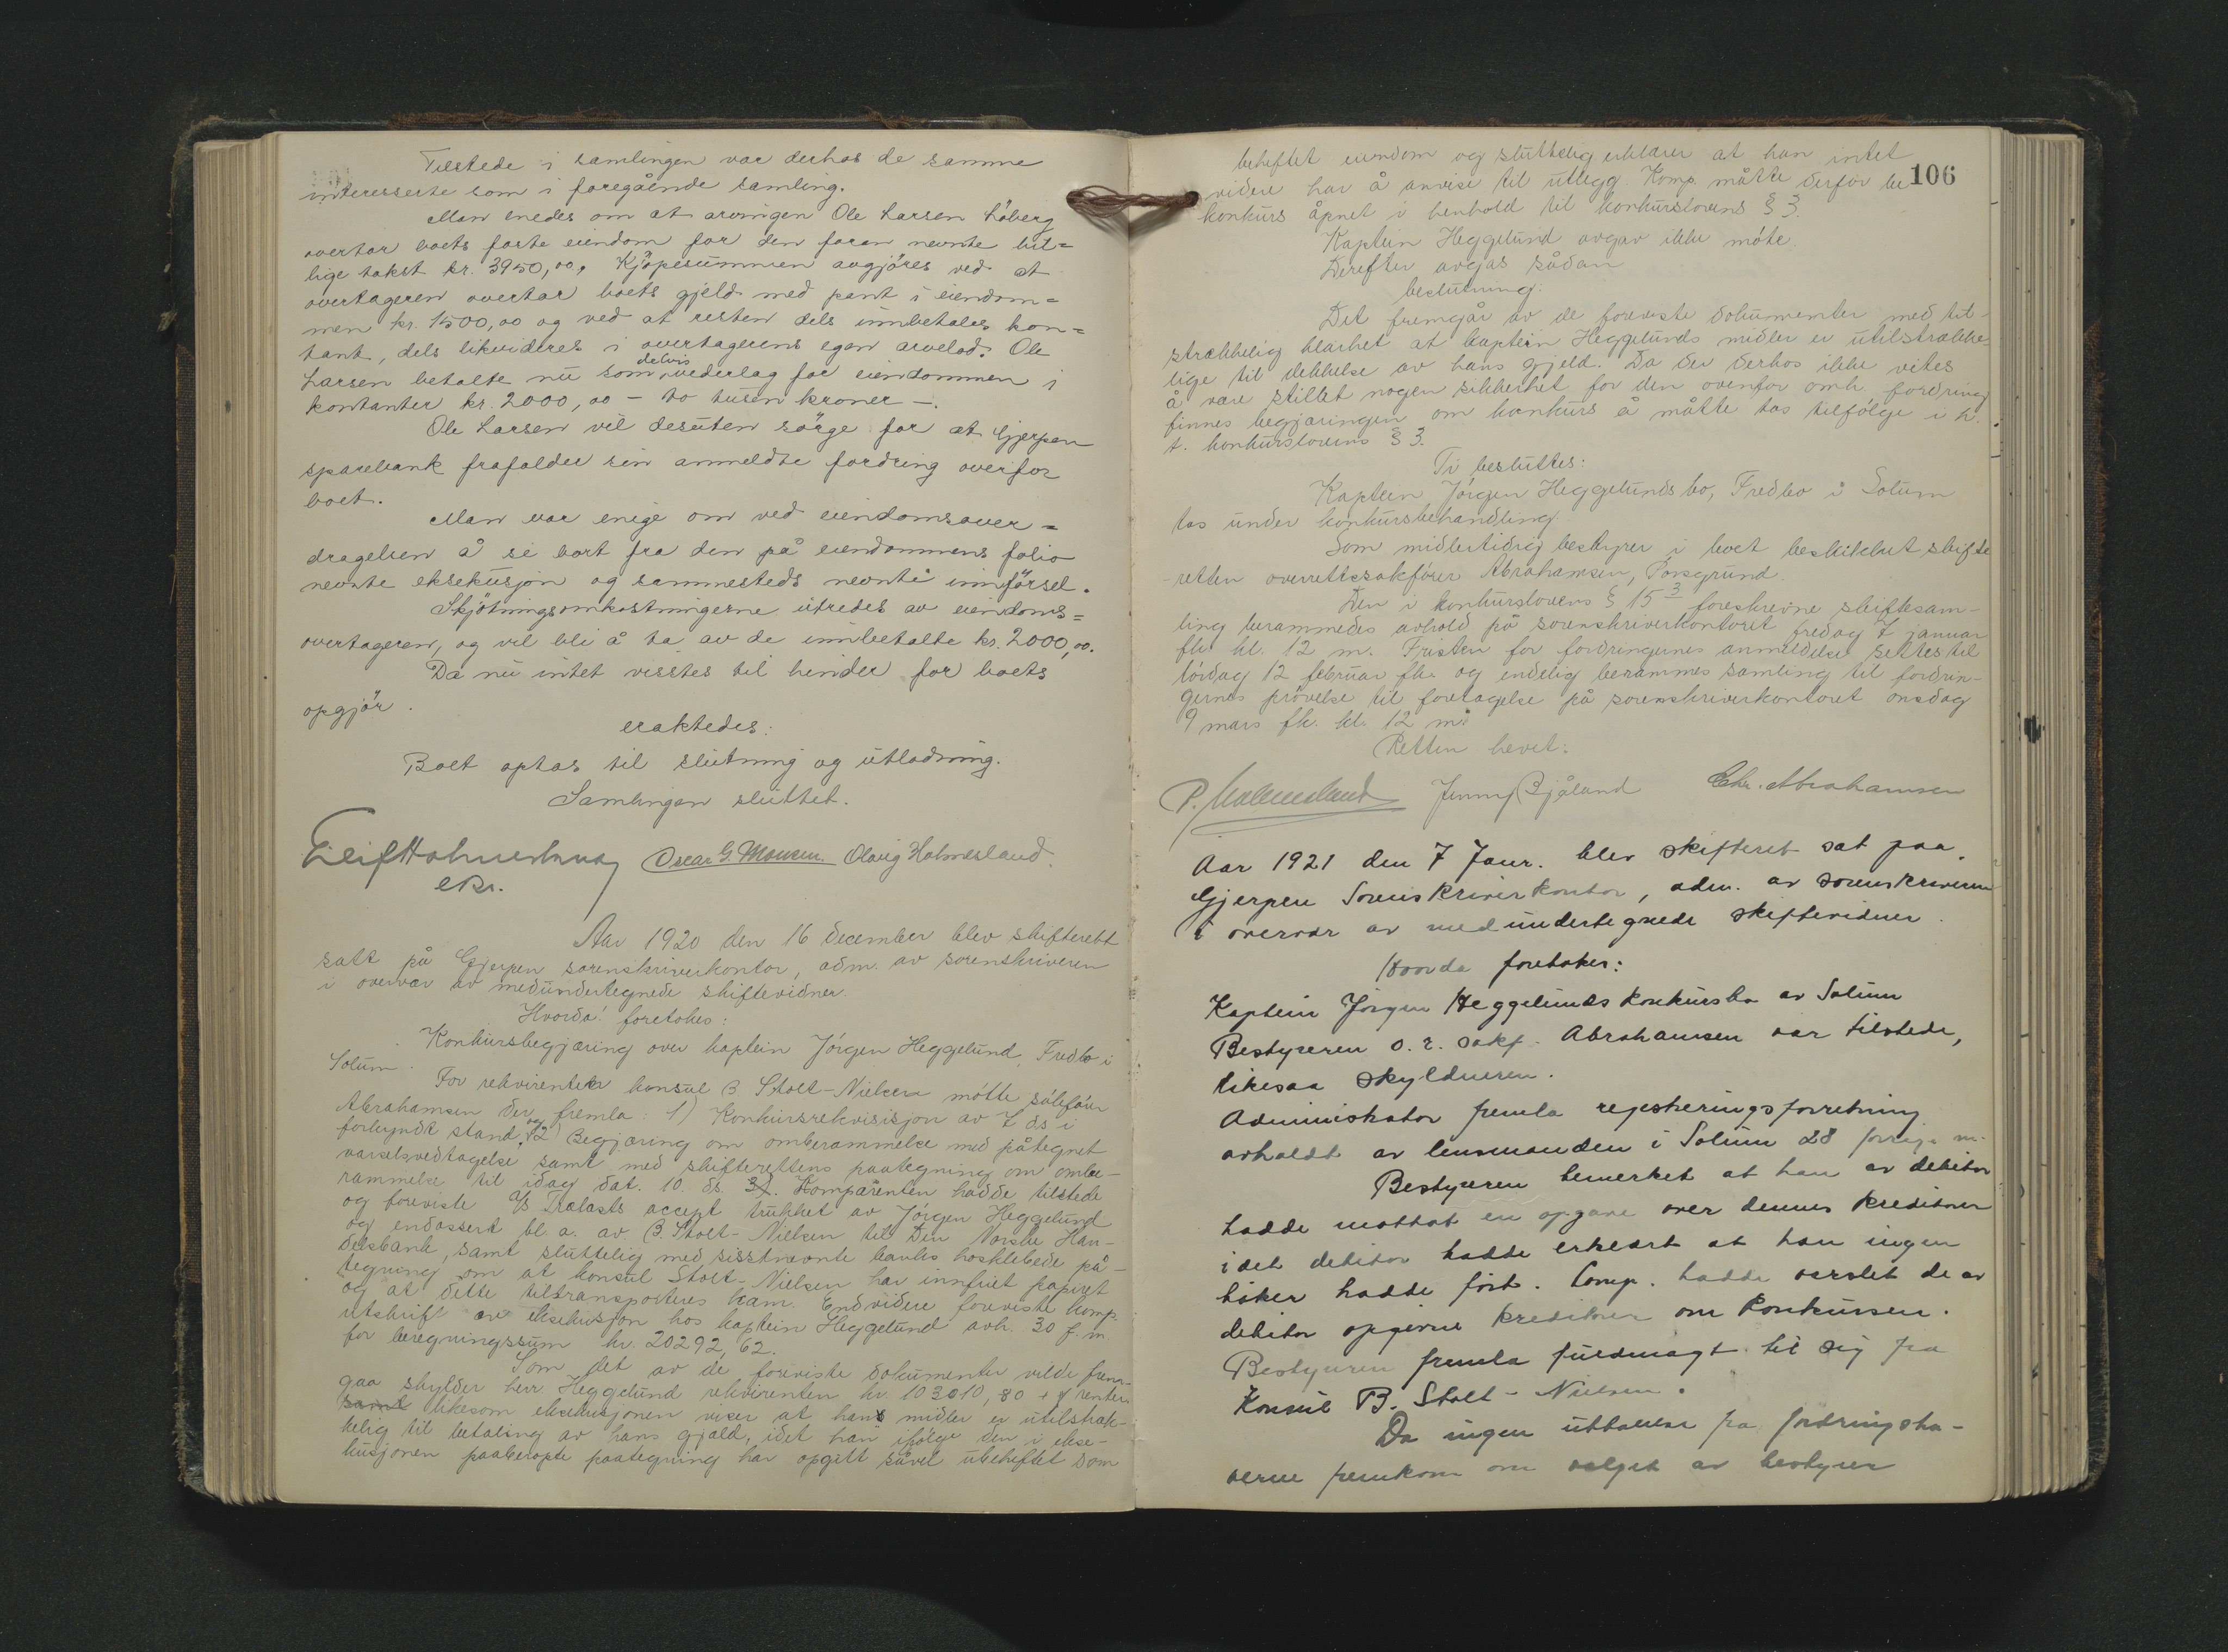 Tilstede i samlingen var derhos de samme
interesserte som i foregående samling.
Man enedes om at arvingen Ole Larsen Löberg
overtar boets faste eiendom for den foran nevnte bil=
lige takst kr. 3950,00. Kjöpesummen avgjöres ved at
overtageren overtar boets gjeld med pant i eiendom=
men kr. 1500,00 og ved at resten dels innbetales kon=
tant, dels likvideres i overtagerens egen arvelod. Ole
Larsen betalte nu som delvis vederlag for eiendommen i
kontanter kr. 2000,00 — to tusen kroner —.
Ole Larsen vil desuten sörge for at Gjerpen
sparebank frafalder sin anmeldte fordring overfor
boet.
Man var enige om ved eiendomsover=
dragelsen å se bort fra den på eiendommens folio
nevnte eksekusjon og sammesteds nevnte innförsel.
Skjötningsomkostningerne utredes av eiendoms=
overtageren, og vil bli å ta av de innbetalte kr. 2000,00.
Da nu intet visstes til hinder for boets
opgjör.
eraktedes:
Boet optas til slutning og utlodning.
Samlingen sluttet.
Eilif Holmesland Oscar G. Monsen. Olavig Holmesland.
eksr.
Aar 1920 den 16 december blev skifterett
satt på Gjerpen sorenskriverkontor, adm. av sorenskriveren
i overvær av medundertegnede skiftevidner.
Hvorda! foretokes:
Konkursbegjæring over kaptein Jörgen Heggelund, Fredbo i
Solum.
For rekvirenten konsul B. Stolt-Nielsen mötte sakförer
Abrahamsen der fremla: 1) Konkursrekvisisjon av 7 ds i
forkyndt stand, og 2) Begjæring om omberammelse med påtegnet
varselsvedtagelse samt med skifterettens paategning om ombe-
rammelse til idag dat. 10. ds. 3). Komparenten hadde tilstede
og foreviste A/S Trælasts accept trukket av Jörgen Heggelund
og endossert bl. a. av B. Stolt-Nielsen til Den Norske Han-
delsbank, samt sluttelig med sisstnevnte banks hosklebede på-
tegning om at konsul Stolt-Nielsen har innfriet papiret
og at dette tiltransporteres ham. Endvidere foreviste komp.
utskrift av eksekusjon hos kaptein Heggelund avh. 30 f. m.
for beregningssum kr. 20292,62.
Som det av de foreviste dokumenter vilde frem-
gaa skylder herr Heggelund rekvirenten kr. 103010,80 + renter
samt likesom eksekusjonen viser at hans midler er utilstræk-
kelig til betaling av hans gjæld, idet han ifölge den i ekse-
kusjonen paaberopte paategning har opgitt såvel ubeheftet som
106
beheftet eiendom og sluttelig erklærer at han intet
videre har å anvise til utlegg. Komp. måtte derfor be
konkurs åpnet i henhold til konkurslovens § 3.
Kaptein Heggelund avgav ikke möte.
Derefter avgas sådan
beslutning:
Det fremgår av de foreviste dokumenter med til-
strækkelig klarhet at kaptein Heggelunds midler er utilstrække-
lige til dekkelse av hans gjeld. Da der derhos ikke vites
å være stillet nogen sikkerhet for den ovenfor omh. fordring
finnes begjæringen om konkurs å måtte tas tilfölge i h.
t. konkurslovens § 3.
Ti besluttes:
Kaptein Jörgen Heggelunds bo, Fredbo i Solum
tas under konkursbehandling.
Som midlertidig bestyrer i boet beskikket skifte
-retten overrettssakförer Abrahamsen, Porsgrund.
Den i konkurslovens § 15 3 foreskrevne skiftesam-
ling berammedes avhold på sorenskriverkontoret fredag 7 januar
fk. kl. 12 m. Fristen for fordringernes anmeldelse settes til
lördag 12 februar fk. og endelig berammes samling til fordrin-
gernes prövelse til foretagelse på sorenskriverkontoret onsdag
9 mars fk. kl. 12 m.
Retten hevet.
P. Holmesland Jenny Bjåland Chr. Abrahamsen
Aar 1921 den 7 Janr. blev skifteret sat paa
Gjerpen Sorenskriverkontor, adm. av sorenskriveren
i overvær av medundertegnede skiftevidner.
Hvorda foretokes:
Kaptein Jörgen Heggelunds konkursbo av Solum
Bestyreren o. r. sakf. Abrahamsen var tilstede,
likesaa skyldneren.
Administrator fremla registeringsforretning
avholdt av lensmanden i Solum 28 forrige m.
Bestyreren bemerket at han av debitor
hadde mottat en opgave over dennes kreditorer
idet debitor hadde erklært at han ingen
böker hadde fört. Comp. hadde varslet de av
debitor opgivne kreditorer om konkursen.
Bestyreren fremla fuldmagt til sig fra
Konsul B. Stolt-Nielsen.
Da ingen uttalelse fra fordringsha-
verne fremkom om valget av bestyrer